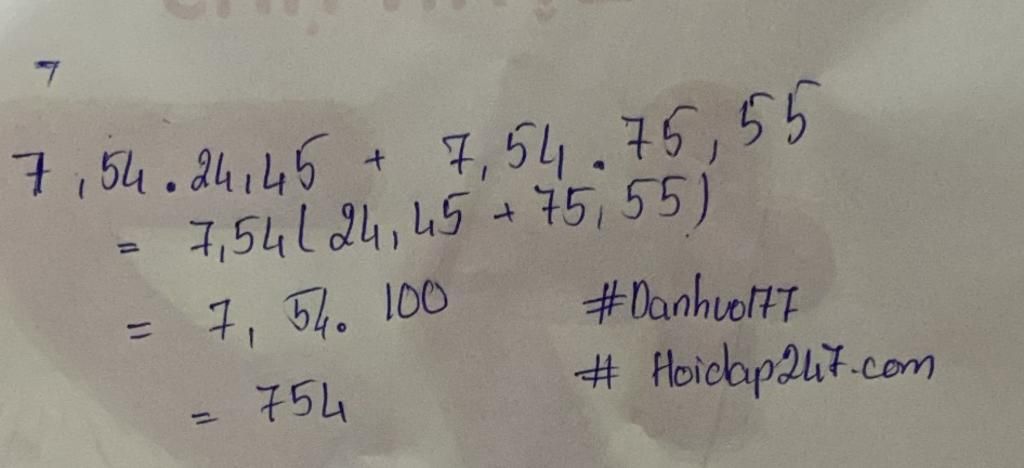 7
7,54.24,45 + 7,54.75,55
= 7,54(24,45 + 75,55)
= 7,54.100
= 754
#Danhvo177
# Hoidap247.com